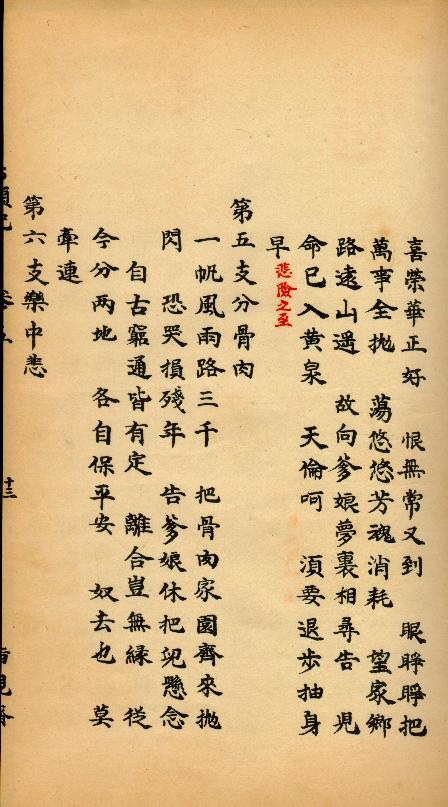 喜榮華正好　恨無常又到　眼睜睜把
萬事全抛　蕩悠悠芳魂消耗　望家鄉
路遠山遥　故向爹娘夢裏相尋告　児
命已入黄泉　天倫呵　湏要退步抽身
早 悲險之至
第五支分骨肉
一帆風雨路三千　把骨肉家園齊來抛
閃　恐哭損殘年　告爹娘休把児懸念
自古窮通皆有定　離合豈無緣　従
今分兩地　各自保平安　奴去也　莫
牽連
第六支樂中悲
十三